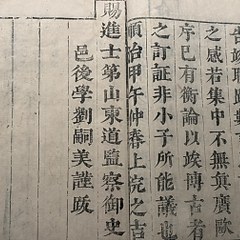 之感若集中不無真贋
序已有衡論以竢博古者
之訂証非小子所能議也
順治甲午仲春上浣之吉
賜進士第山東道監察御史
邑後學劉嗣美謹跋